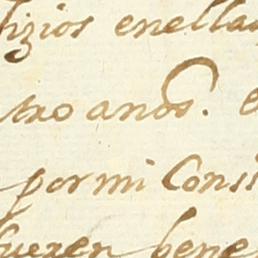 fizios enella
tro anos. e
por mi Consi
fueren bene